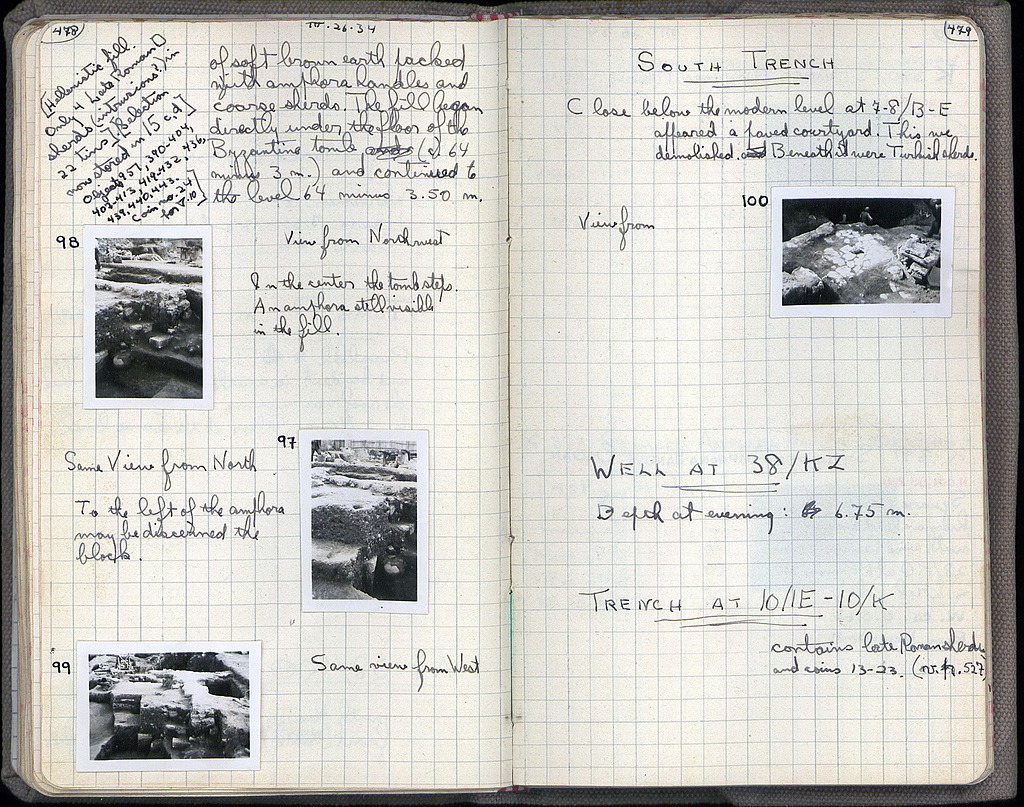 478
III.26.34
[Hellenistic fill.
Only 4 Late Roman D
sherds (intrusions?) in
22 tins.] [Selection
now stored in 15 c,d]
407-413, 419-432, 436,
439, 440, 443.
Coin no. 24
for V.10]
of soft brown earth packed
with amphora handles and
coarse sherds. The fill began
directly under the floor of the
Byzantine tomb (of 64
minus 3 m.) and continued to
the level 64 minus 3.50 m.
98
View from Northwest
In the center the tomb steps.
An amphora still visible
in the fill.
97
Same View from North
To the left of the amphora
may be discerned the
block.
99
Same view from West
479
SOUTH TRENCH
Close below the modern level at 7-8/13-E
appeared a paved courtyard. This we
demolished. Beneath it were Turkish sherds.
100
View from
WELL AT 38/KZ
Depth at evening: 6.75 m.
TRENCH AT 10/IE-10/K
contains late Roman sherds
and coins 13-23. (v. p. 527)